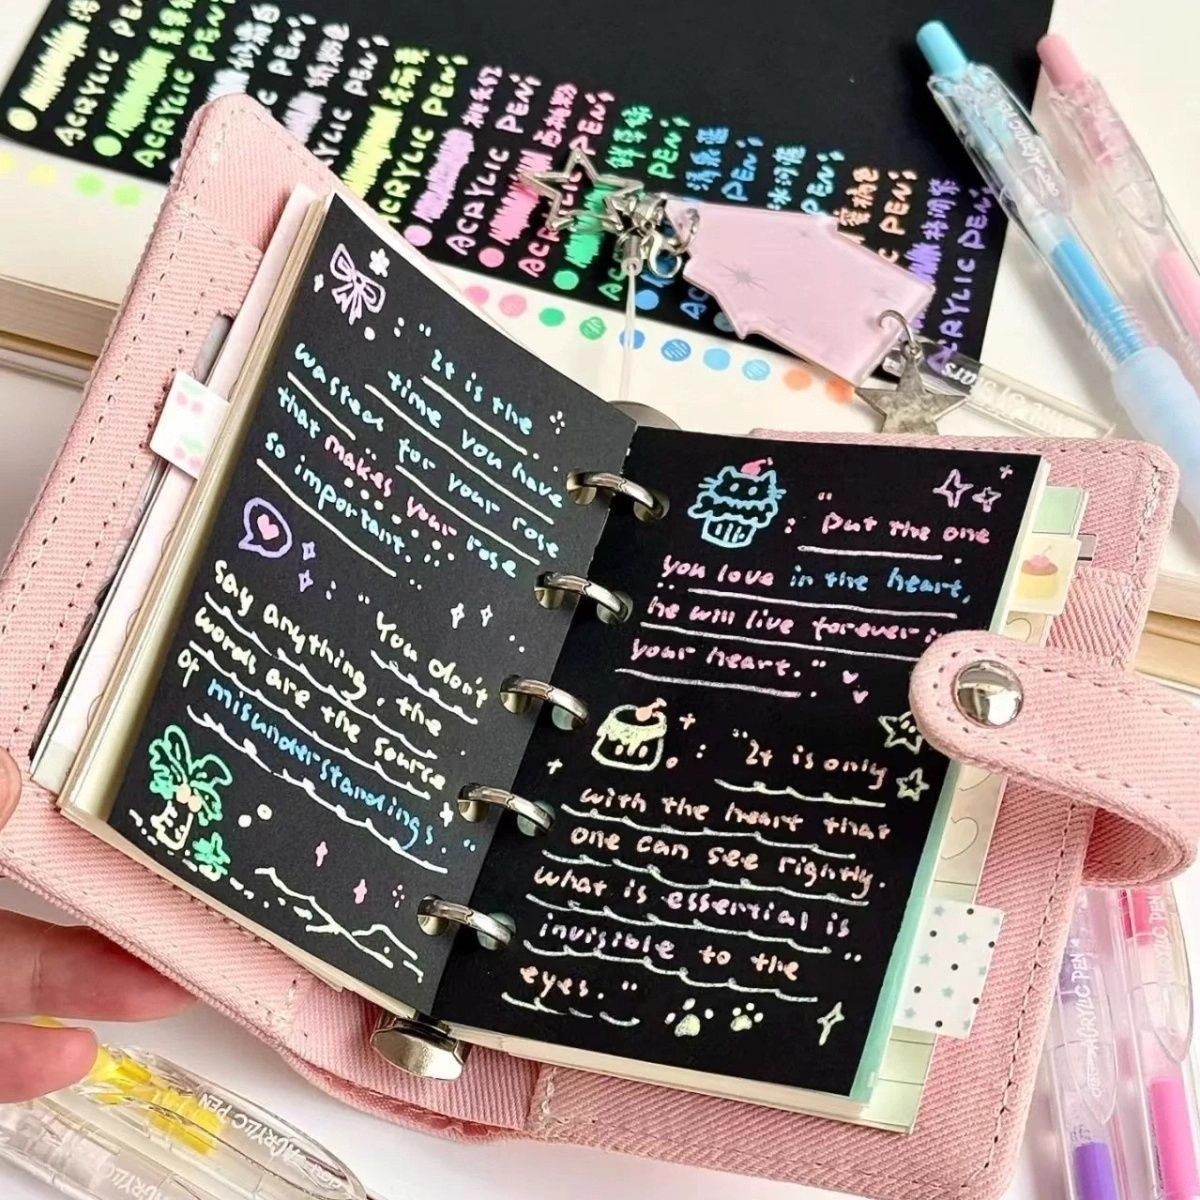 : "It is the
time you have
wasted for your rose
that makes your rose
so important."
: "You don't
say anything, the
words are the source
of misunderstandings."
: "Put the one
you love in the heart,
he will live forever in
your heart."
: "It is only
with the heart that
one can see rightly.
what is essential is
invisible to the
eyes."
ACRYLIC PEN
ACRYLIC PEN
ACRYLIC PEN
ACRYLIC PEN
ACRYLIC PEN
ACRYLIC PEN
ACRYLIC PEN
ACRYLIC PEN
ACRYLIC PEN